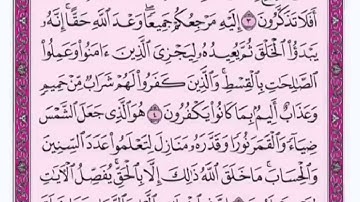 أَفَلَا تَذَكَّرُونَ ٣ إِلَيْهِ مَرْجِعُكُمْ جَمِيعًا ۖ وَعْدَ اللَّهِ حَقًّا ۚ إِنَّهُ
يَبْدَؤُا الْخَلْقَ ثُمَّ يُعِيدُهُ لِيَجْزِيَ الَّذِينَ ءَامَنُوا وَعَمِلُوا
الصَّالِحَاتِ بِالْقِسْطِ ۚ وَالَّذِينَ كَفَرُوا لَهُمْ شَرَابٌ مِّنْ حَمِيمٍ
وَعَذَابٌ أَلِيمٌ بِمَا كَانُوا يَكْفُرُونَ ٤ هُوَ الَّذِي جَعَلَ الشَّمْسَ
ضِيَاءً وَالْقَمَرَ نُورًا وَقَدَّرَهُ مَنَازِلَ لِتَعْلَمُوا عَدَدَ السِّنِينَ
وَالْحِسَابَ ۚ مَا خَلَقَ اللَّهُ ذَٰلِكَ إِلَّا بِالْحَقِّ ۚ يُفَصِّلُ الْآيَاتِ